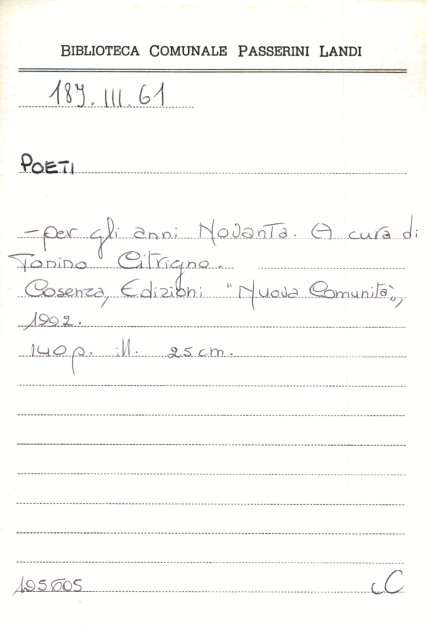 BIBLIOTECA COMUNALE PASSERINI LANDI
189.III.61
POETI
- per gli anni Novanta. A cura di
Tonino Citrigno.
Cosenza, Edizioni "Nuova Comunità",
1992.
140 p. ill. 25 cm.
195605
C